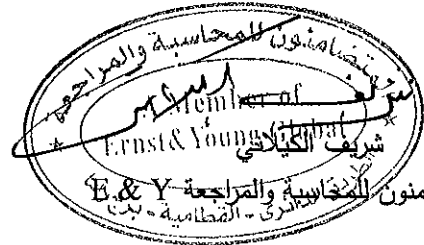 متضامنون للمحاسبة والمراجعة
Member of
Ernst & Young Global
شريف الكيلاني
منون للمحاسبة والمراجعة E & Y
القطامية